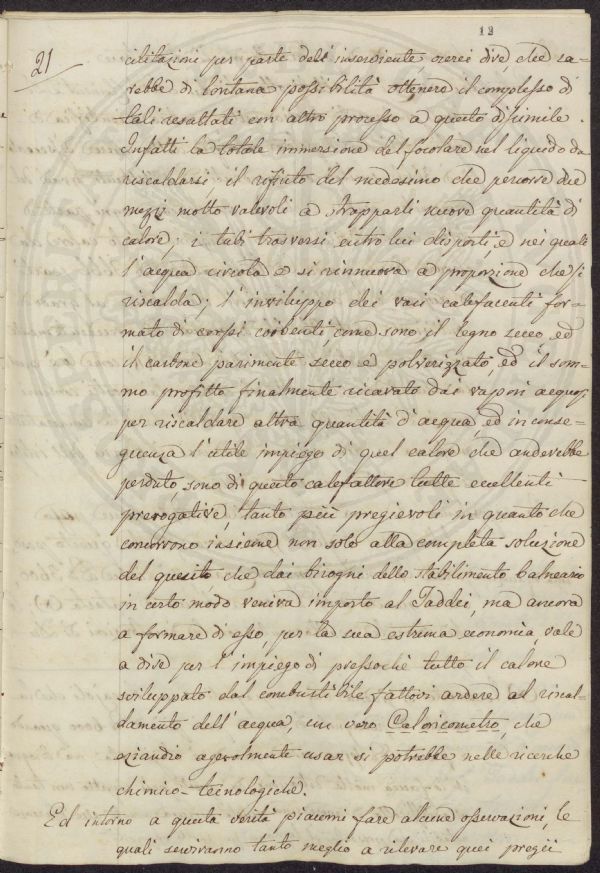 12
21
cilitazioni per parte dell'inserviente oserei dire, che sa-
rebbe di lontana possibilità ottenere il complesso di
tali resultati con altro processo a questo dissimile.
Infatti la totale immersione del focolare nel liquido da
riscaldarsi, il rifiuto del medesimo che percorre due
mezzi molto valevoli a strapparli nuove quantità di
calore; i tubi trasversi entro lui disposti, e nei quali
l'acqua circola e si rinnuova a proporzione che si
riscalda; l'inviluppo dei vasi calefacenti for-
mato di corpi coibenti, come sono il legno secco, ed
il carbone parimente secco e polverizzato, ed il som-
mo profitto finalmente ricavato dai vapori acquosi
per riscaldare altra quantità d'acqua, ed in conse-
guenza l'utile impiego di quel calore che anderebbe
perduto, sono di questo calefattore tutte eccellenti
prerogative, tanto più pregievoli in quanto che
concorrono insieme non solo alla completa soluzione
del quesito che dai bisogni dello stabilimento balneario
in certo modo veniva imposto al Taddei, ma ancora
a formare di esso, per la sua estrema economia, vale
a dire per l'impiego di pressochè tutto il calore
sviluppato dal combustibile fattovi ardere al riscal-
damento dell'acqua, un vero Caloricometro, che
eziandio agevolmente usar si potrebbe nelle ricerche
chimico-tecnologiche.
Ed intorno a questa verità piacemi fare alcune osservazioni, le
quali serviranno tanto meglio a rilevare quei pregii